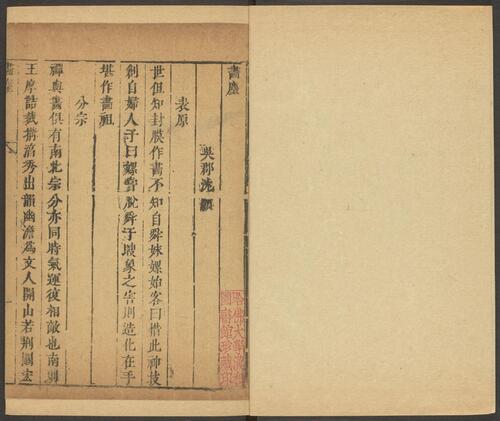 畫麈
吳郡沈顥
表原
世但知封膜作畫不知自舜妹嫘始客曰惜此神技
創自婦人予曰嫘嘗脫舜于瞍象之害則造化在手
堪作畫祖
分宗
禪與畫俱有南北宗分亦同時氣運復相敵也南則
王摩詰裁搆淳秀出韻幽澹為文人開山若荆關宏
畫麈
哈佛大學漢和
圖書館珍藏印